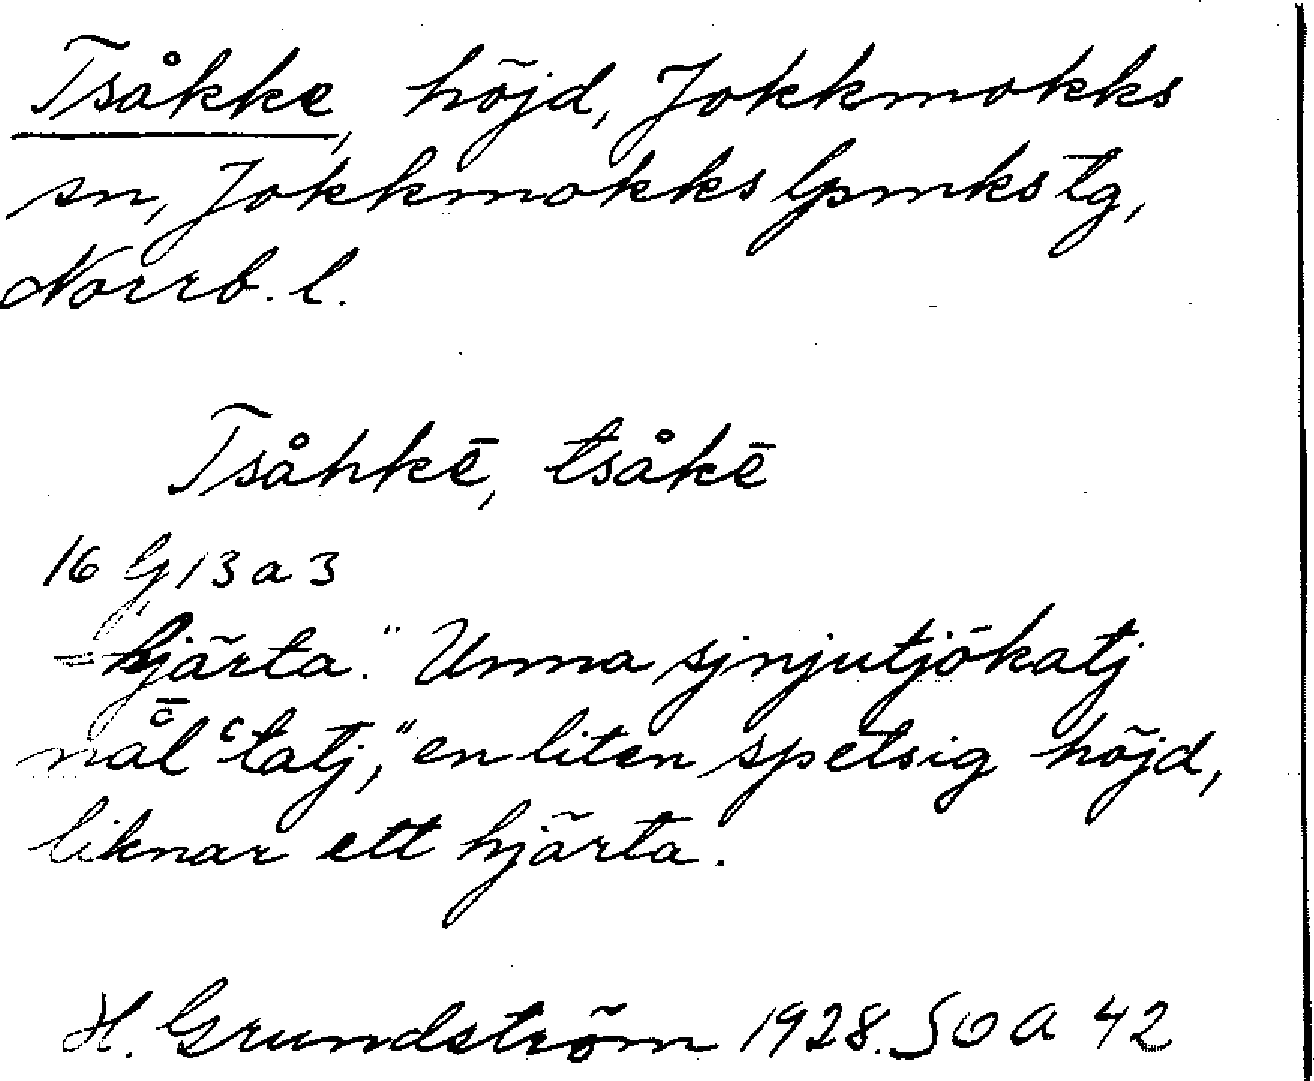 Tsåkke, höjd, Jokkmokks
sn, Jokkmokks lpmkstg,
Norrb. l.
Tsåhkē, tsåkē
16 G 13 a 3
= hjärta. "Unna sjnjutjōkatj
nål̄ʿtatj," en liten spetsig höjd,
liknar ett hjärta.
H. Grundström 1928. SOA 42